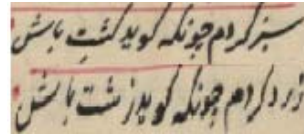 سبز کردم چونکه کوید کشت باش
زرد کردم چونکه کوید زشت باش